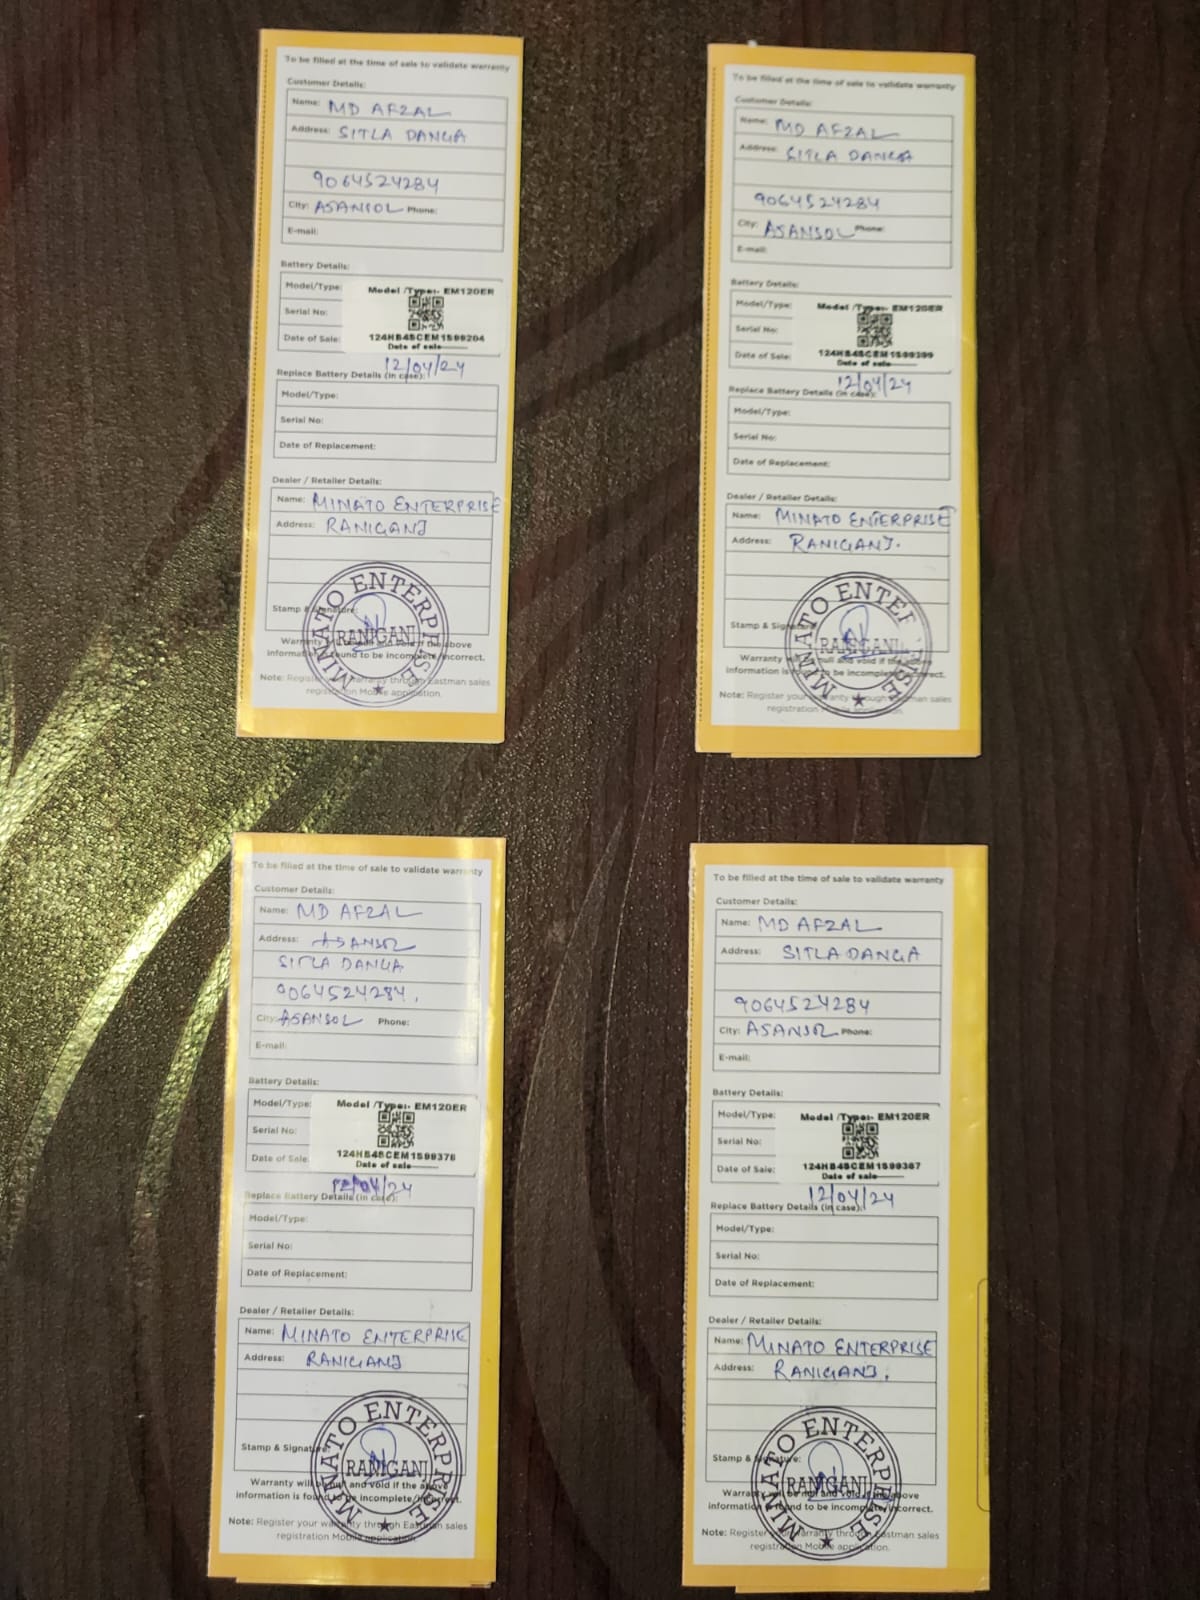 To be filled at the time of sale to validate warranty
Customer Details:
Name: MD AFZAL
Address: SITLA DANGA
9064524284
City: ASANSOL Phone:
E-mail:
Battery Details:
Model/Type: Model /Type:- EM120ER
Serial No:
Date of Sale: 124HB48CEM1S99204
Date of sale
12/04/24
Replace Battery Details (in case):
Model/Type:
Serial No:
Date of Replacement:
Dealer / Retailer Details:
Name: MINATO ENTERPRISE
Address: RANIGANJ
MINATO ENTERPRISE
RANIGANJ
Stamp & Signature:
Warranty will be null and void if the above
information is found to be incomplete/incorrect.
Note: Register your warranty through Eastman sales
registration Mobile application.
To be filled at the time of sale to validate warranty
Customer Details:
Name: MD AFZAL
Address: SITLA DANGA
9064524284
City: ASANSOL Phone:
E-mail:
Battery Details:
Model/Type: Model /Type:- EM120ER
Serial No:
Date of Sale: 124HB48CEM1S99399
Date of sale
12/04/24
Replace Battery Details (in case):
Model/Type:
Serial No:
Date of Replacement:
Dealer / Retailer Details:
Name: MINATO ENTERPRISE
Address: RANIGANJ.
MINATO ENTERPRISE
RANIGANJ
Stamp & Signature
Warranty will be null and void if the above
information is found to be incomplete/incorrect.
Note: Register your warranty through Eastman sales
registration Mobile application.
To be filled at the time of sale to validate warranty
Customer Details:
Name: MD AFZAL
Address: ASANSOL
SITLA DANGA
9064524284.
City: ASANSOL Phone:
E-mail:
Battery Details:
Model/Type: Model /Type:- EM120ER
Serial No:
Date of Sale: 124HB48CEM1S99376
Date of sale
12/04/24
Replace Battery Details (in case):
Model/Type:
Serial No:
Date of Replacement:
Dealer / Retailer Details:
Name: MINATO ENTERPRISE
Address: RANIGANJ
MINATO ENTERPRISE
RANIGANJ
Stamp & Signature:
Warranty will be null and void if the above
information is found to be incomplete/incorrect.
Note: Register your warranty through Eastman sales
registration Mobile application.
To be filled at the time of sale to validate warranty
Customer Details:
Name: MD AFZAL
Address: SITLA DANGA
9064524284
City: ASANSOL Phone:
E-mail:
Battery Details:
Model/Type: Model /Type:- EM120ER
Serial No:
Date of Sale: 124HB48CEM1S99387
Date of sale
12/04/24
Replace Battery Details (in case):
Model/Type:
Serial No:
Date of Replacement:
Dealer / Retailer Details:
Name: MINATO ENTERPRISE
Address: RANIGANJ.
MINATO ENTERPRISE
RANIGANJ
Stamp & Signature:
Warranty will be null and void if the above
information is found to be incomplete/incorrect.
Note: Register your warranty through Eastman sales
registration Mobile application.